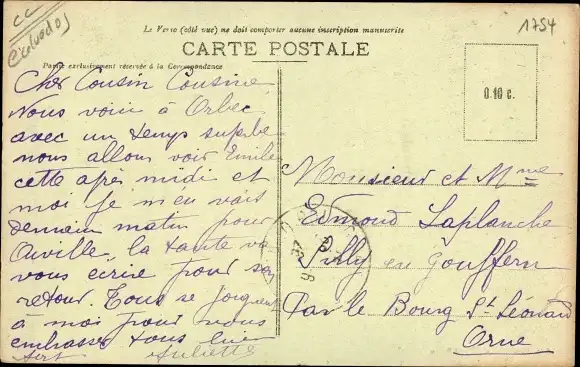 CC
(Calvados)
Le Verso (côté vue) ne doit comporter aucune inscription manuscrite
1754
CARTE POSTALE
Partie exclusivement réservée à la Correspondance
0.10 c.
Cher Cousin Cousine
Nous voici à Orbec
avec un temps superbe
nous allons voir Emile
cette après midi et
moi je m'en vais
demain matin pour
la tante va
vous écrire pour son
retour. Tous se joignent
à moi pour vous
embrasser tous bien
fort Juliette
Monsieur et Mme
Edmond Laplanche
Silly en Gouffern
Par le Bourg St Léonard
Orne